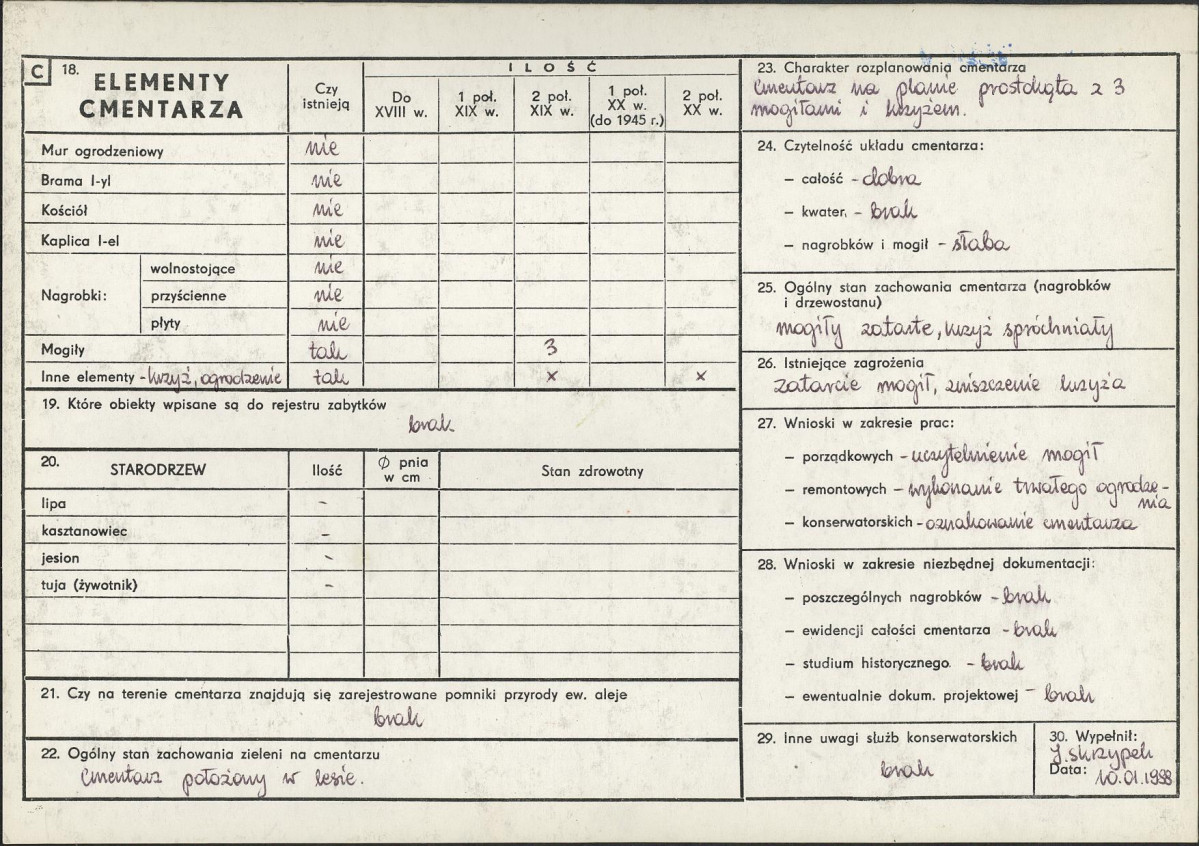 C 18. ELEMENTY CMENTARZA
Czy istnieją
ILOŚĆ
Do XVIII w.
1 poł. XIX w.
2 poł. XIX w.
1 poł. XX w. (do 1945 r.)
2 poł. XX w.
Mur ogrodzeniowy nie
Brama l-yl nie
Kościół nie
Kaplica l-el nie
Nagrobki:
wolnostojące nie
przyścienne nie
płyty nie
Mogiły tak 3
Inne elementy - krzyż, ogrodzenie tak x x
19. Które obiekty wpisane są do rejestru zabytków
brak
20. STARODRZEW Ilość Ø pnia w cm Stan zdrowotny
lipa -
kasztanowiec -
jesion -
tuja (żywotnik) -
21. Czy na terenie cmentarza znajdują się zarejestrowane pomniki przyrody ew. aleje
brak
22. Ogólny stan zachowania zieleni na cmentarzu
Cmentarz położony w lesie.
23. Charakter rozplanowania cmentarza
Cmentarz na planie prostokąta z 3
mogiłami i krzyżem.
24. Czytelność układu cmentarza:
— całość - dobra
— kwater. - brak
— nagrobków i mogił - słaba
25. Ogólny stan zachowania cmentarza (nagrobków
i drzewostanu)
mogiły zatarte, krzyż spróchniały
26. Istniejące zagrożenia
zatarcie mogił, zniszczenie krzyża
27. Wnioski w zakresie prac:
— porządkowych - uczytelnienie mogił
— remontowych - wykonanie trwałego ogrodze-
nia
— konserwatorskich - oznakowanie cmentarza
28. Wnioski w zakresie niezbędnej dokumentacji:
— poszczególnych nagrobków - brak
— ewidencji całości cmentarza - brak
— studium historycznego. - brak
— ewentualnie dokum. projektowej - brak
29. Inne uwagi służb konserwatorskich
brak
30. Wypełnił:
J. Skrzypek
Data: 10.01.1988